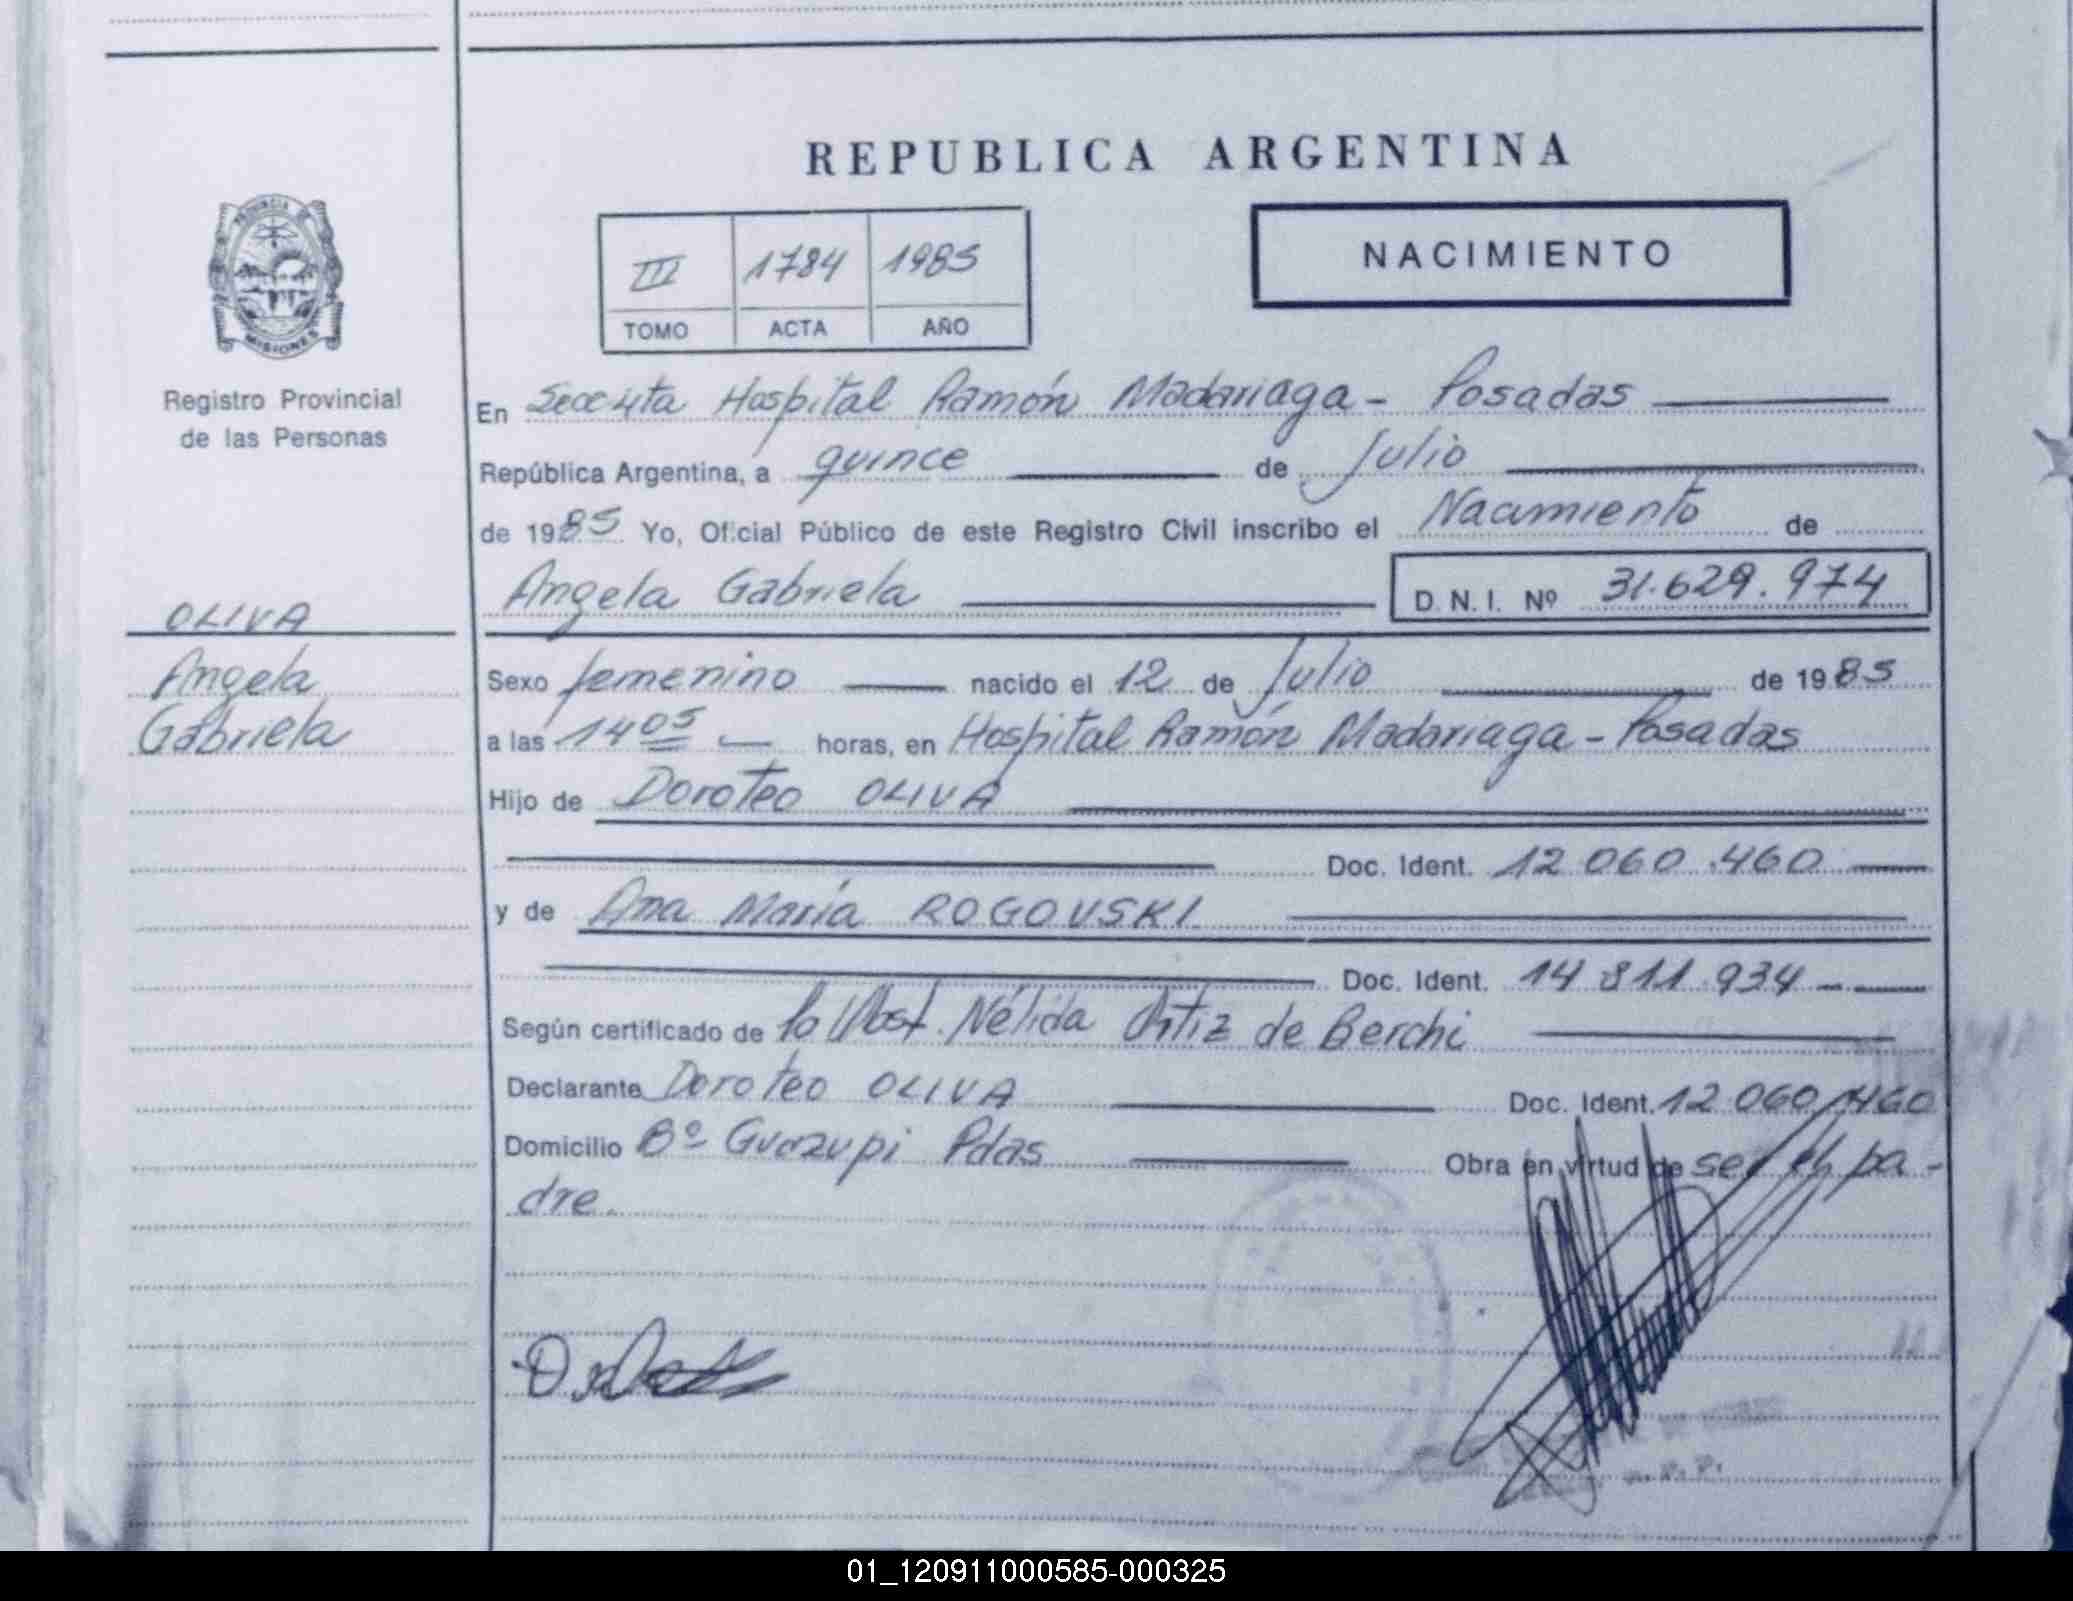 REPUBLICA ARGENTINA
PROVINCIA DE
MISIONES
III 1784 1985
TOMO ACTA AÑO
NACIMIENTO
Registro Provincial
de las Personas
En Hospital Ramón Madariaga - Posadas
República Argentina, a quince de Julio
de 1985 Yo, Oficial Público de este Registro Civil inscribo el Nacimiento de
Angela Gabriela D. N. I. Nº 31.629.974
OLIVA
Angela
Gabriela
Sexo femenino nacido el 12 de Julio de 1985
a las 14 05 horas, en Hospital Ramón Madariaga - Posadas
Hijo de Doroteo OLIVA
Doc. Ident. 12.060.460
y de Ana María ROGOVSKI
Doc. Ident. 14.811.934
Según certificado de la Obst. Nélida Ortiz de Berchi
Declarante Doroteo OLIVA Doc. Ident. 12.060.460
Domicilio Bº Guazupi Pdas Obra en virtud de ser el pa-
dre.
01_120911000585-000325